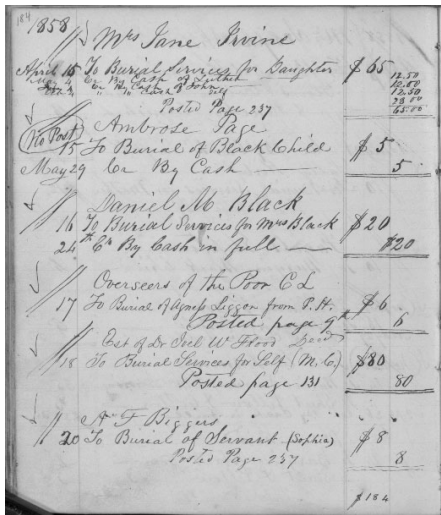 184
1858
Mrs Jane Irvine
April 15 To Burial Services for Daughter $65
May 4 Cr By Cash of Luther 12.50
Cr By Cash 12.50
" " Cash 12.50
Posted Page 237 65.00
Ambrose Page
No Post
15 To Burial of Black Child $5
May 29 Cr By Cash 5
Daniel M Black
16 To Burial Services for Mrs Black $20
24th Cr By Cash in full $20
Overseers of the Poor C L
17 To Burial of Agness Liggon from P. H. $6
Posted page 9th 6
Est of Dr Joel W Flood
18 To Burial Services for Self (M. C) $80
Posted page 131 80
A F Biggers
20 To Burial of Servant (Sophia) $8
Posted Page 237 8
$184